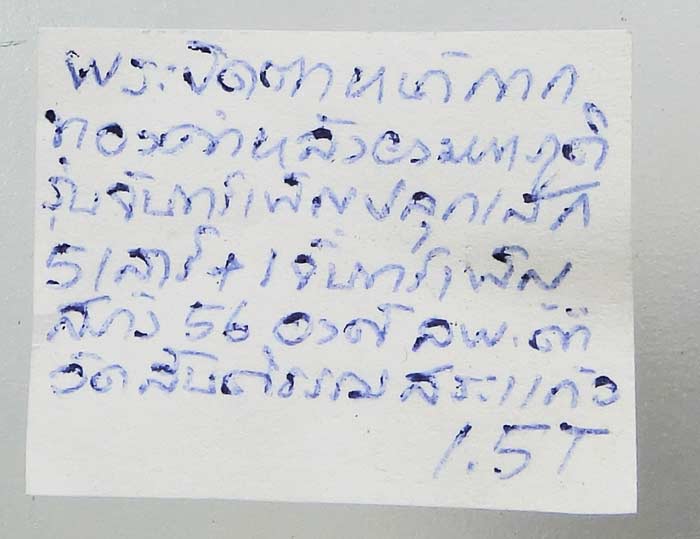 พระปิดตาหน้ากาก
ทองคำหลัง
รุ่นจันทร์เพ็ญปลุกเสก
5 เสาร์ + 1 จันทร์เพ็ญ
สร้าง 56 องค์ ลพ. ดำ
วัดสันติธรรม สระแก้ว
1.5T